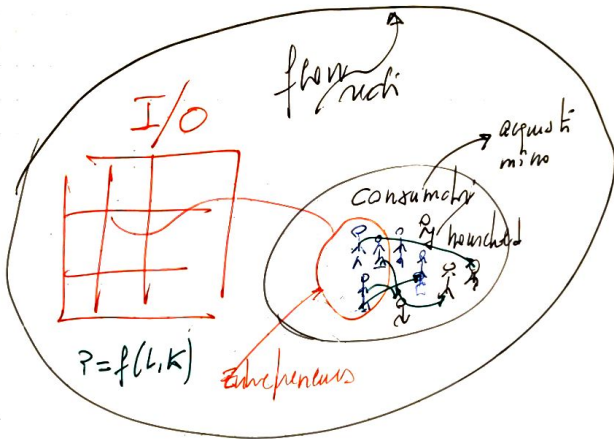 flow
I/O
acquisti
consumatori
household
P=f(L,K)
Entrepreneurs